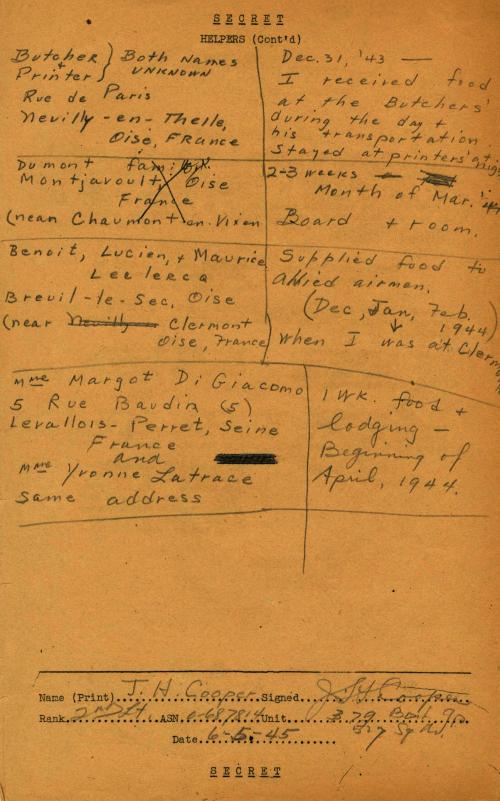 SECRET
HELPERS (Cont'd)
Butcher } Both Names
+ UNKNOWN
Printer
Rue de Paris
Nevilly-en-Thelle,
Oise, France
Dec. 31, '43 —
I received food
at the Butchers'
during the day +
his transportation.
Stayed at printers' at
Dumont fam:
Montjavoult, Oise
France
(near Chaumont-en-Vixen
2-3 weeks —
Month of Mar. '44
Board + room.
Benoit, Lucien, + Maurice
Leclerca
Breuil-le-Sec, Oise
(near Neuilly Clermont
Oise, France)
Supplied food to
Allied airmen.
(Dec, Jan, Feb.
1944)
When I was at Clerm
Mme Margot Di Giacomo
5 Rue Baudin (5)
Levallois-Perret, Seine
France
and
Mme Yvonne Latrace
Same address
1 wk. food +
lodging —
Beginning of
April, 1944.
Name (Print) J. H. Cooper Signed
Rank 2nd Lt. ASN 0-687814 Unit 379 Bomb Gr.
527 Sq
Date 6-5-45
SECRET